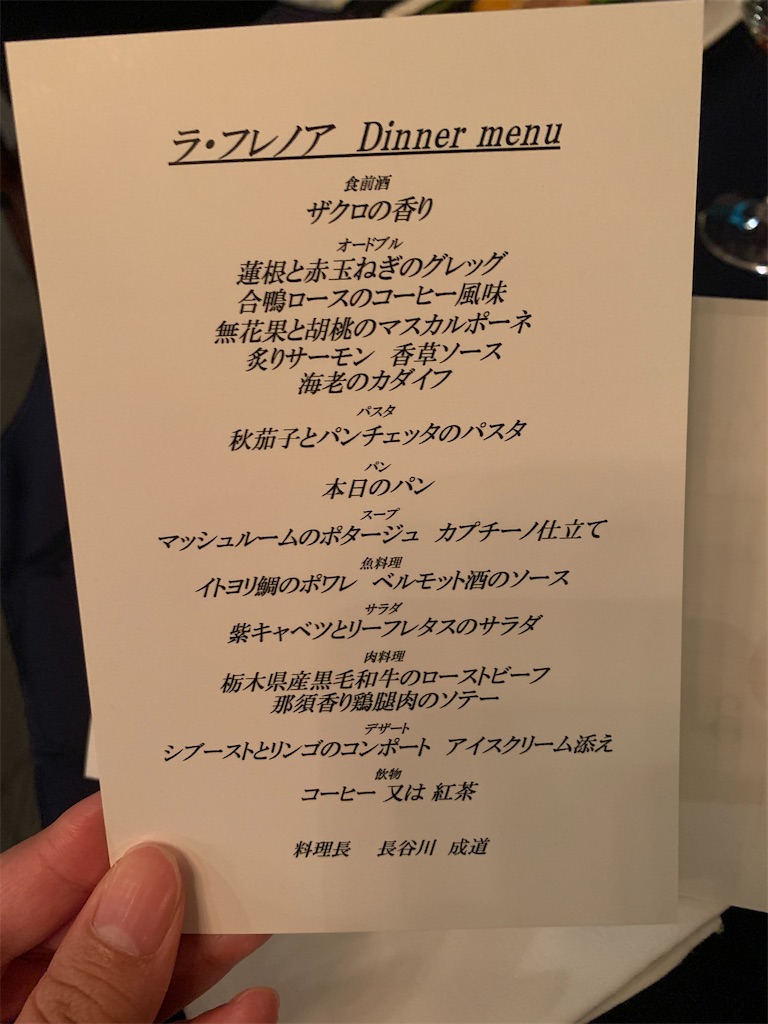 ラ・フレノア Dinner menu
食前酒
ザクロの香り
オードブル
蓮根と赤玉ねぎのグレッグ
合鴨ロースのコーヒー風味
無花果と胡桃のマスカルポーネ
炙りサーモン 香草ソース
海老のカダイフ
パスタ
秋茄子とパンチェッタのパスタ
パン
本日のパン
スープ
マッシュルームのポタージュ カプチーノ仕立て
魚料理
イトヨリ鯛のポワレ ベルモット酒のソース
サラダ
紫キャベツとリーフレタスのサラダ
肉料理
栃木県産黒毛和牛のローストビーフ
那須香り鶏腿肉のソテー
デザート
シブーストとリンゴのコンポート アイスクリーム添え
飲物
コーヒー 又は 紅茶
料理長 長谷川 成道